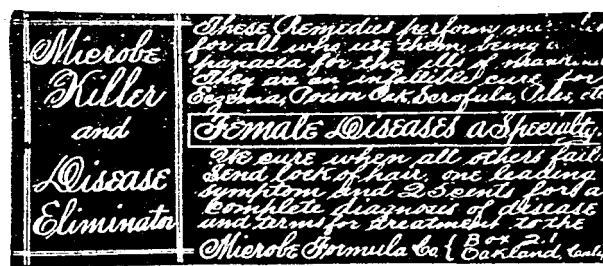 Microbe
Killer
and
Disease
Eliminator
These Remedies perform
for all who use them, being a
panacea for the ills of mankind
They are an infallible cure for
Eczema, Poison Oak, Scrofula, Piles, etc
Female Diseases a Specialty.
We cure when all others fail.
Send lock of hair, one leading
symptom and 25 cents for a
complete diagnosis of disease
and terms for treatment to the
Microbe Formula Co { Box
Oakland,